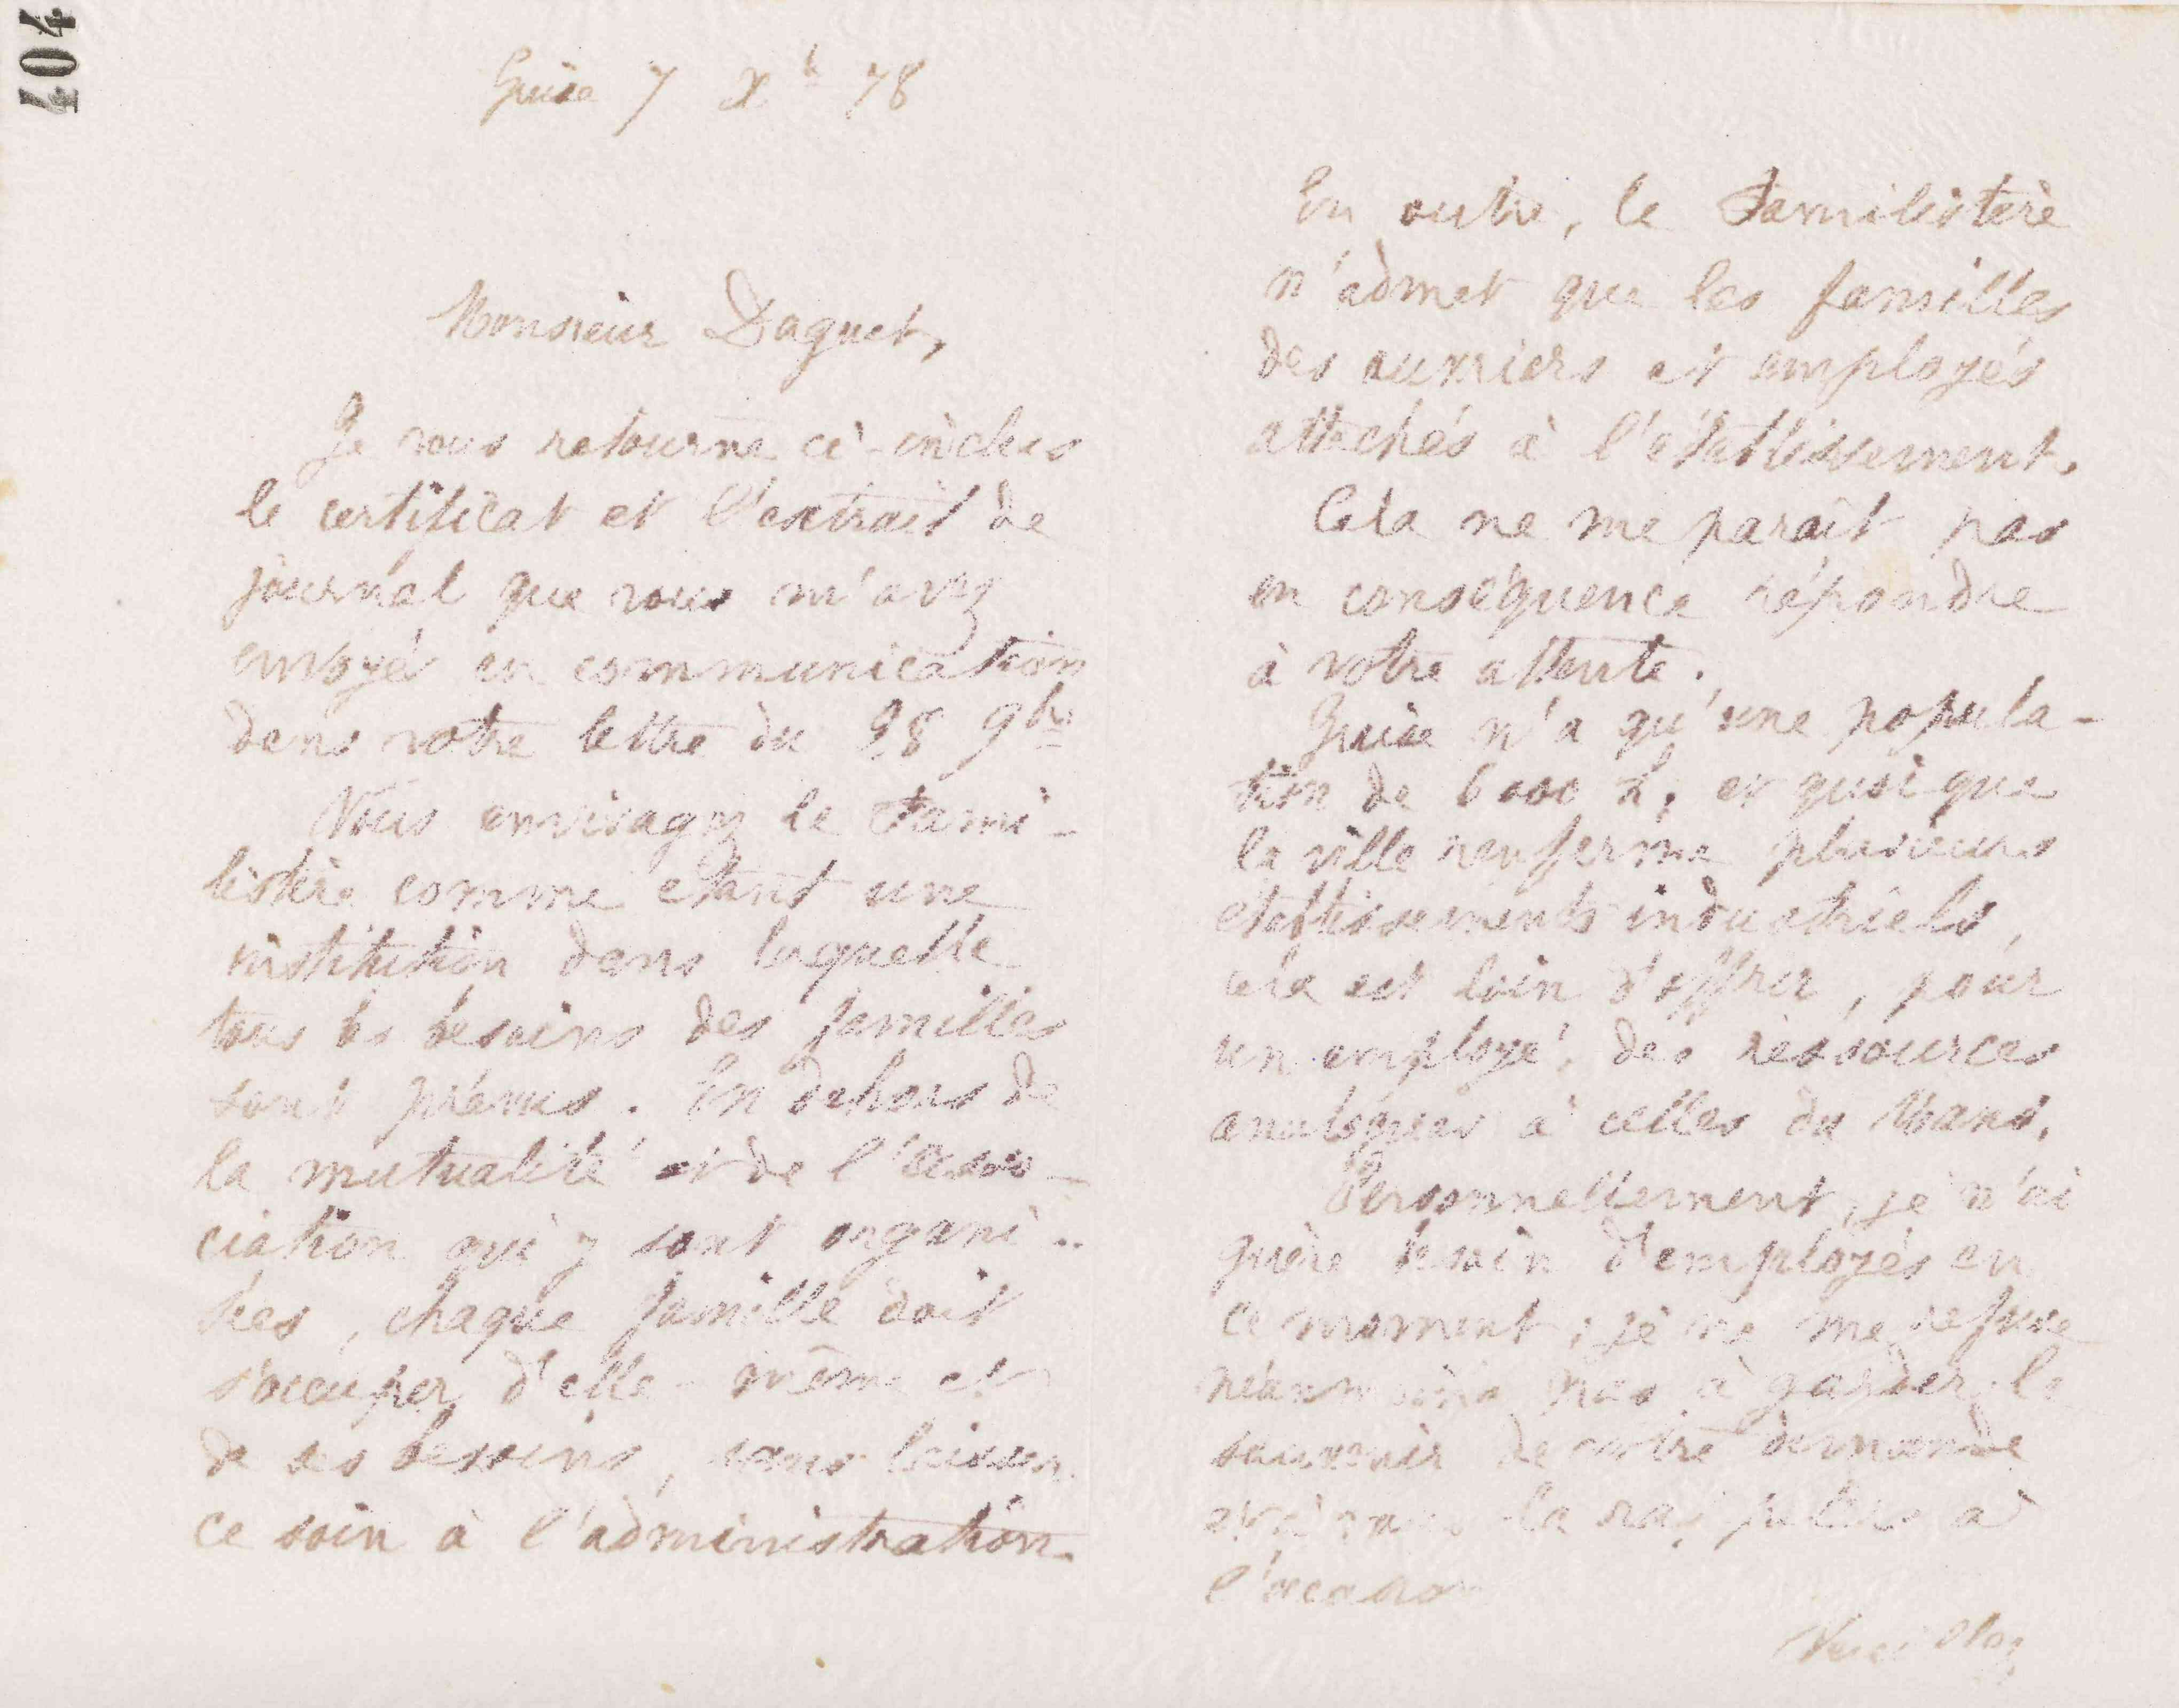 404
Guise 7 Xb 78
Monsieur Daguet,
Je vous retourne ci-inclus
le certificat et l'extrait de
journal que vous m'avez
envoyé en communication
dans votre lettre du 28 9bre
Vous envisagez le Fami-
listère comme étant une
institution dans laquelle
tous les besoins des familles
sont prévus. En dehors de
la mutualité et de l'asso-
ciation qui y sont organi-
sées, chaque famille doit
s'occuper d'elle-même et
de ses besoins, sans laisser
ce soin à l'administration.
En outre, le Familistère
n'admet que les familles
des ouvriers et employés
attachés à l'établissement.
Cela ne me parait pas
en conséquence répondre
à votre attente.
Guise n'a qu'une popula-
tion de 6000 h, et quoique
la ville renferme plusieurs
établissements industriels,
cela est loin d'offrir, pour
un employé, des ressources
analogues à celles du Mans.
Personnellement, je n'ai
guère besoin d'employés en
ce moment; je ne me refuse
néanmoins pas à garder le
souvenir de votre demande
à
l'occasion
Veuillez